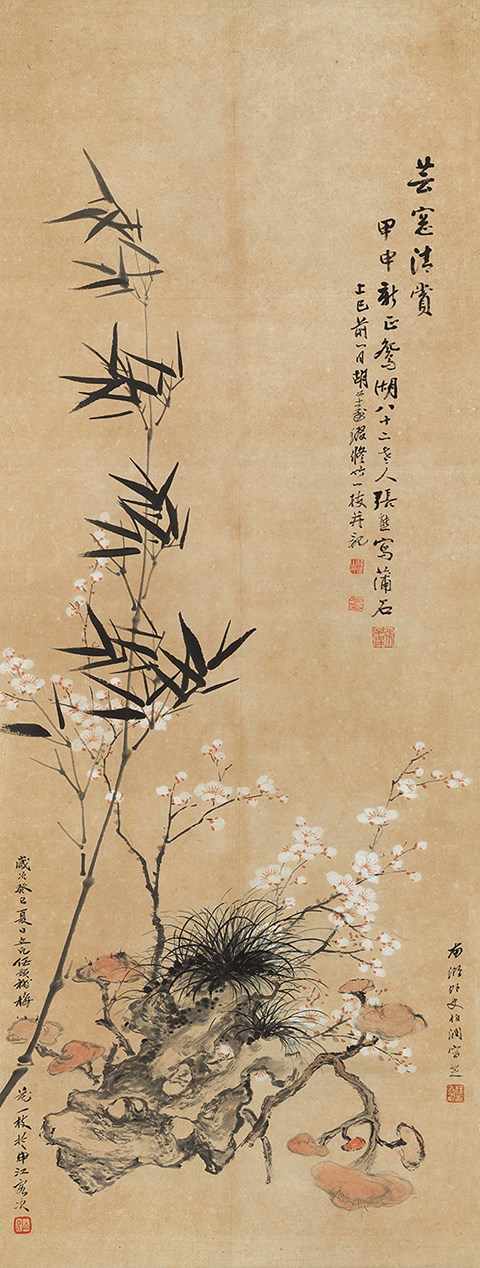 芸窓清賞
甲申新正鴛湖八十二老人張熊寫蒲石
上巳前一日胡公壽綴修竹一枝并記
南湖外史伯潤寫芝
歲次癸巳夏日立凡任預補梅
花一枝於申江客次